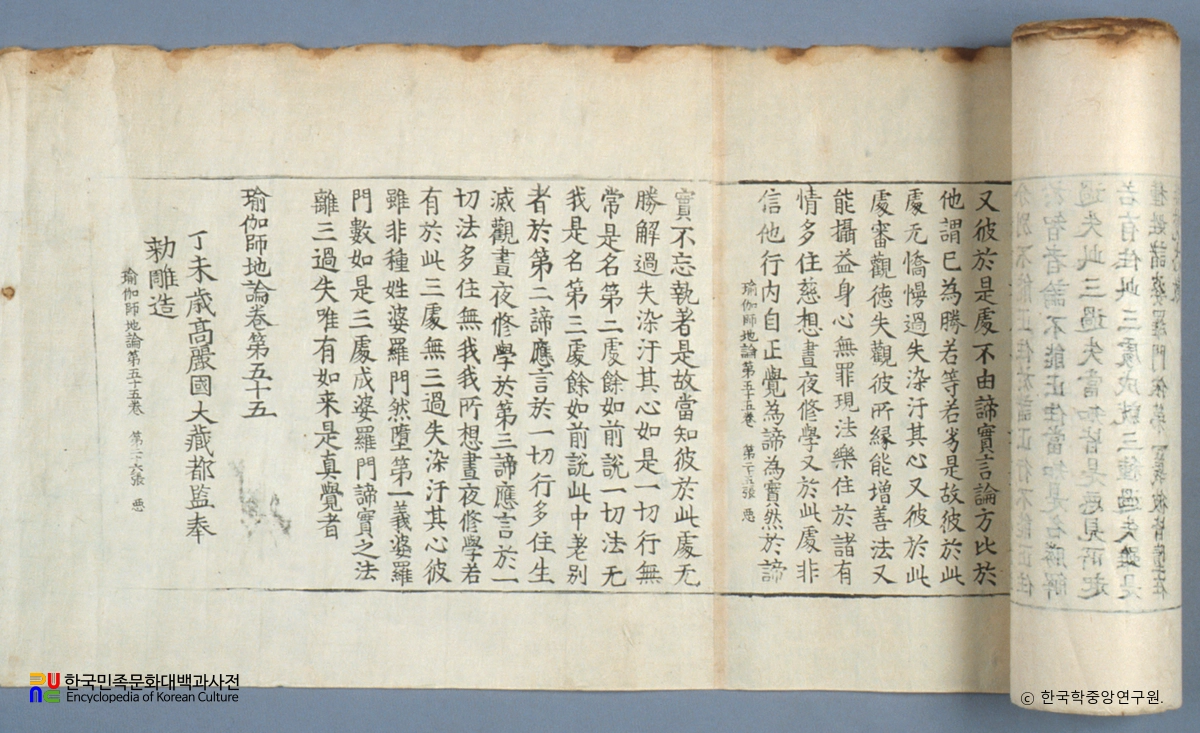 又彼於是處不由諦實言論方比於
他謂已為勝若等若劣是故彼於此
處无憍慢過失染汙其心又彼於此
處審觀德失觀彼所縁能增善法又
能攝益身心無罪現法樂住於諸有
情多住慈想晝夜修學又於此處非
信他行内自正覺為諦為實然於諦
瑜伽師地論第五十五卷 第二十五張 惡
實不忘執著是故當知彼於此處无
勝解過失染汙其心如是一切行無
常是名第二處餘如前說一切法无
我是名第三處餘如前說此中老別
者於第二諦應言於一切行多住生
滅觀晝夜修學於第三諦應言於一
切法多住無我我所想晝夜修學若
有於此三處無三過失染汙其心彼
雖非種姓婆羅門然墮第一義婆羅
門數如是三處成婆羅門諦實之法
離三過失唯有如来是真覺者
瑜伽師地論卷第五十五
丁未歲高麗國大藏都監奉
勑雕造
瑜伽師地論第五十五卷 第二十六張 惡
한국민족문화대백과사전
Encyclopedia of Korean Culture
ⓒ 한국학중앙연구원.